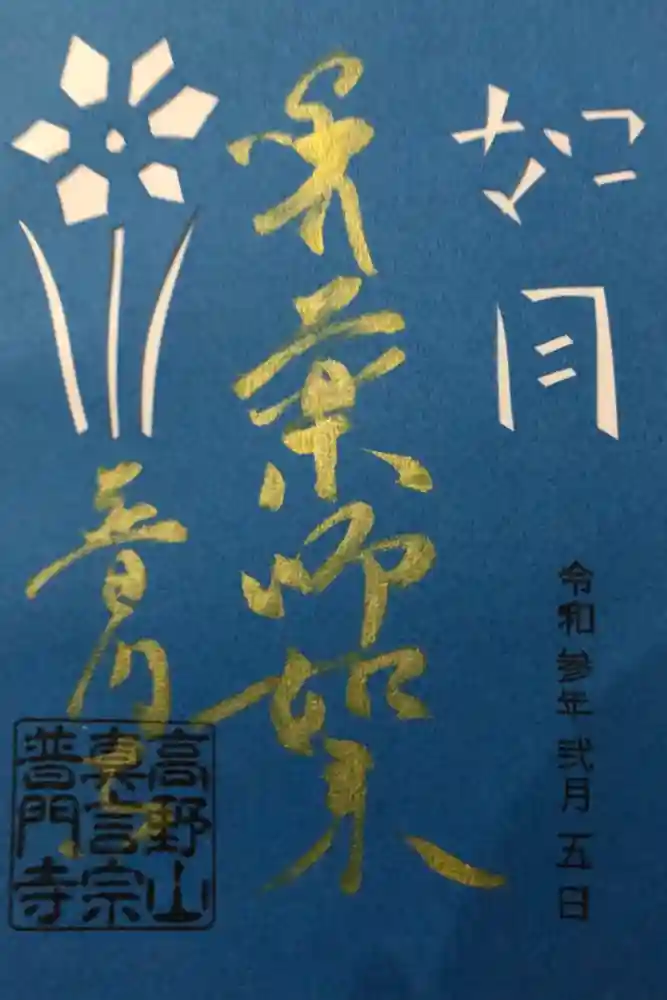 如月
令和参年弐月五日
薬師如来
普門寺
高野山
真言宗
普門寺